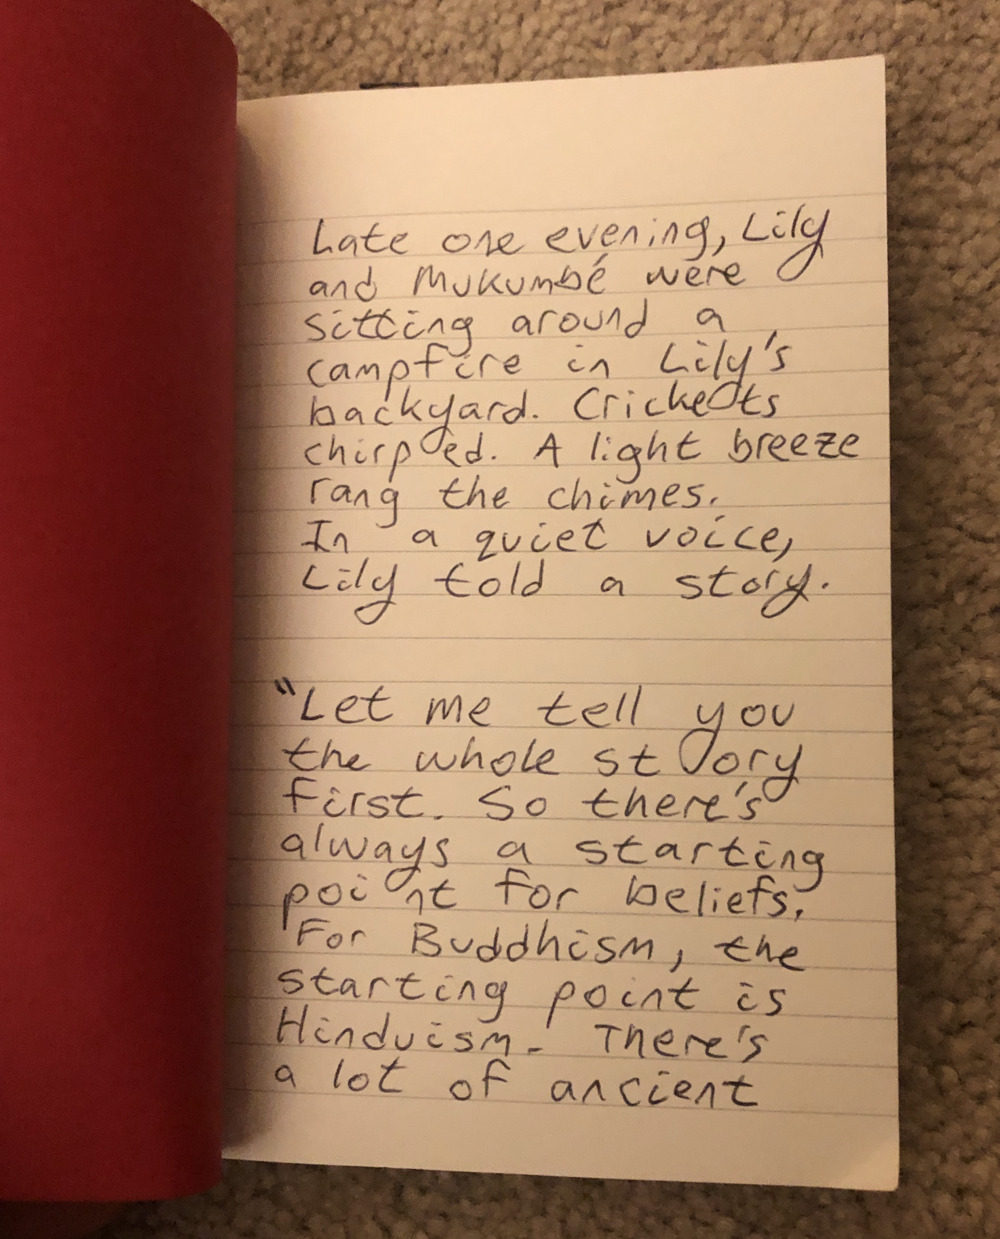 Late one evening, Lily
and Mukumbé were
sitting around a
campfire in Lily's
backyard. Crickets
chirped. A light breeze
rang the chimes.
In a quiet voice,
Lily told a story.
"Let me tell you
the whole story
first. So there's
always a starting
point for beliefs.
For Buddhism, the
starting point is
Hinduism. There's
a lot of ancient